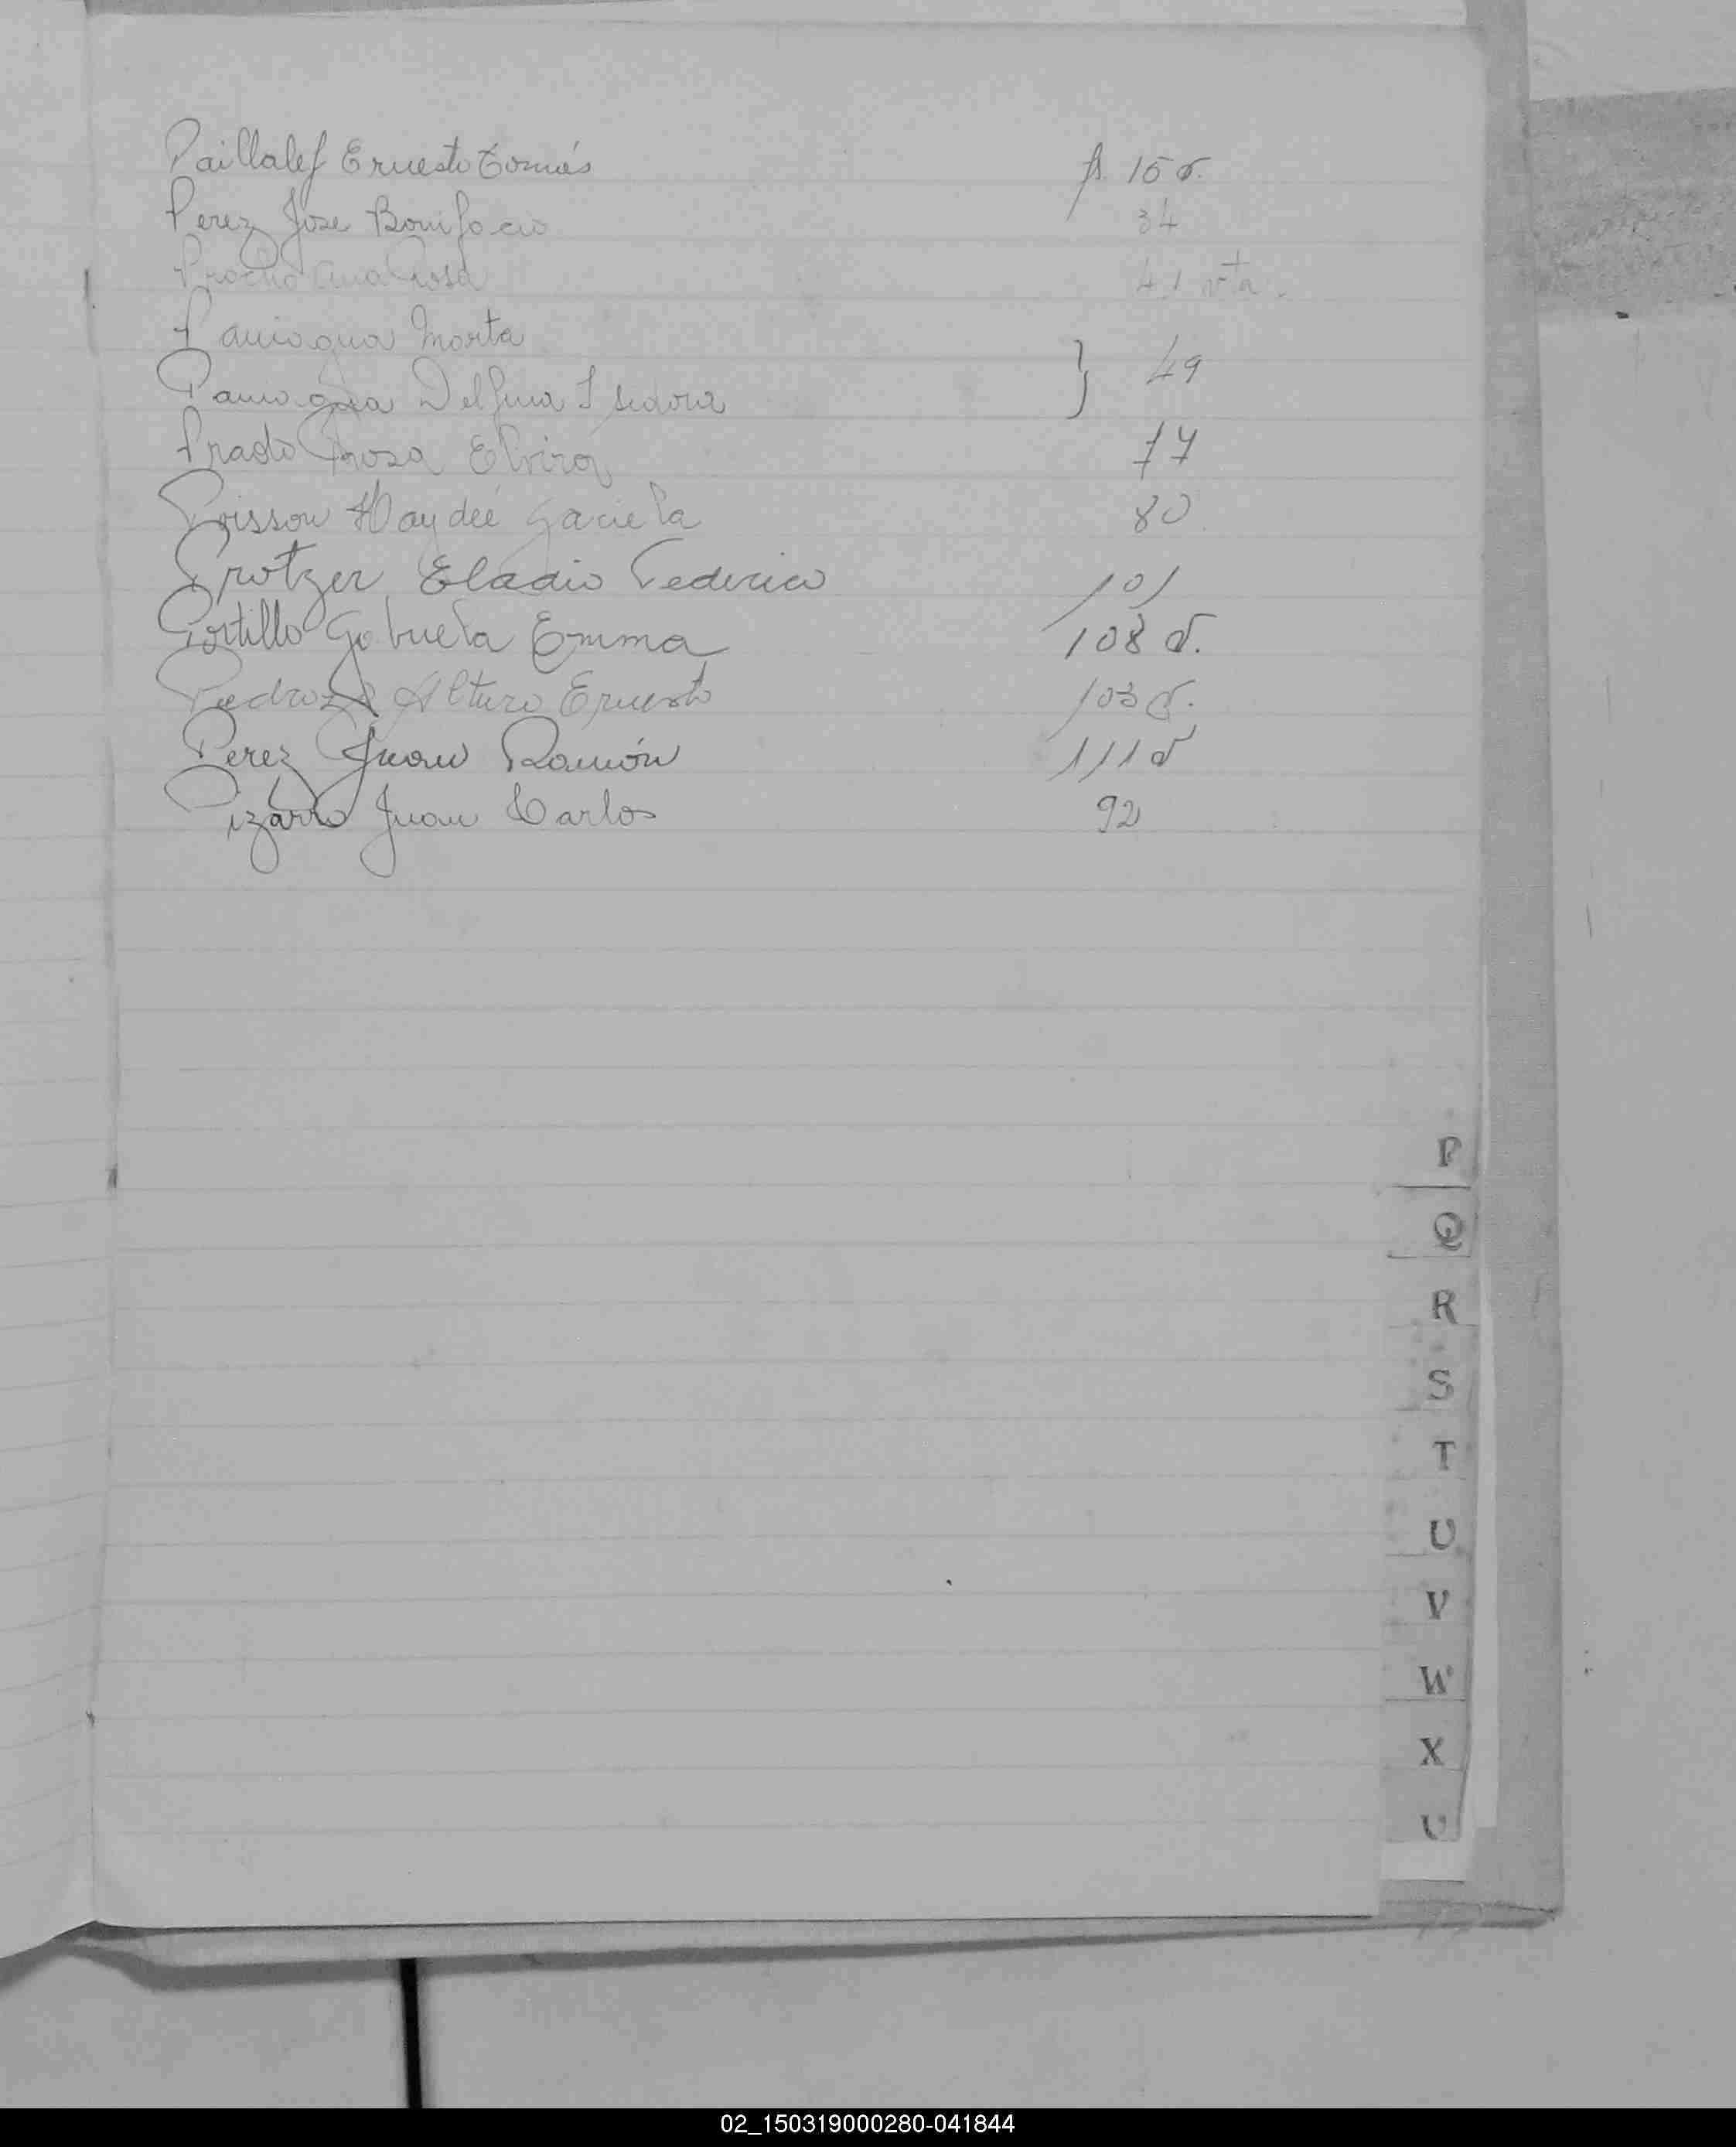 Paillalef Ernesto Tomás f. 15 v.
Perez Jose Bonifacio 34
Ana Rosa 41 vta.
Paniagua Marta
Paniagua Delfina Isidora } 49
Prado Rosa Elvira 77
Poisson Haydée Gaciela 80
Protzer Eladio Federico 101
Portillo Gabriela Emma 108 v.
Pedroza Alturo Ernesto 103 v.
Perez Juan Ramón 111 v
Pizarro Juan Carlos 92
P
Q
R
S
T
U
V
W
X
U
02_150319000280-041844